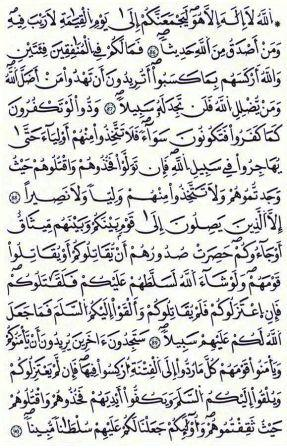 * اَللَّهُ لَا إِلَٰهَ إِلَّا هُوَ لَيَجْمَعَنَّكُمْ إِلَىٰ يَوْمِ الْقِيَٰمَةِ لَا رَيْبَ فِيهِ
وَمَنْ أَصْدَقُ مِنَ اللَّهِ حَدِيثًا فَمَا لَكُمْ فِي الْمُنَٰفِقِينَ فِئَتَيْنِ
وَاللَّهُ أَرْكَسَهُم بِمَا كَسَبُوا أَتُرِيدُونَ أَن تَهْدُوا مَنْ أَضَلَّ اللَّهُ
وَمَنْ يُضْلِلِ اللَّهُ فَلَن تَجِدَ لَهُ سَبِيلًا وَدُّوا لَوْ تَكْفُرُونَ
كَمَا كَفَرُوا فَتَكُونُونَ سَوَآءً فَلَا تَتَّخِذُوا مِنْهُمْ أَوْلِيَآءَ حَتَّىٰ
يُهَاجِرُوا فِي سَبِيلِ اللَّهِ فَإِن تَوَلَّوْا فَخُذُوهُمْ وَاقْتُلُوهُمْ حَيْثُ
وَجَدتُّمُوهُمْ وَلَا تَتَّخِذُوا مِنْهُمْ وَلِيًّا وَلَا نَصِيرًا
إِلَّا الَّذِينَ يَصِلُونَ إِلَىٰ قَوْمٍ بَيْنَكُمْ وَبَيْنَهُم مِّيثَٰقٌ
أَوْ جَآءُوكُمْ حَصِرَتْ صُدُورُهُمْ أَنْ يُقَٰتِلُوكُمْ أَوْ يُقَٰتِلُوا
قَوْمَهُمْ وَلَوْ شَآءَ اللَّهُ لَسَلَّطَهُمْ عَلَيْكُمْ فَلَقَٰتَلُوكُمْ
فَإِنِ اعْتَزَلُوكُمْ فَلَمْ يُقَٰتِلُوكُمْ وَأَلْقَوْا إِلَيْكُمُ السَّلَمَ فَمَا جَعَلَ
اللَّهُ لَكُمْ عَلَيْهِمْ سَبِيلًا سَتَجِدُونَ ءَاخَرِينَ يُرِيدُونَ أَنْ يَأْمَنُوكُمْ
وَيَأْمَنُوا قَوْمَهُمْ كُلَّ مَا رُدُّوا إِلَى الْفِتْنَةِ أُرْكِسُوا فِيهَا فَإِن لَّمْ يَعْتَزِلُوكُمْ
وَيُلْقُوا إِلَيْكُمُ السَّلَمَ وَيَكُفُّوا أَيْدِيَهُمْ فَخُذُوهُمْ وَاقْتُلُوهُمْ
حَيْثُ ثَقِفْتُمُوهُمْ وَأُوْلَٰئِكُمْ جَعَلْنَا لَكُمْ عَلَيْهِمْ سُلْطَٰنًا مُّبِينًا